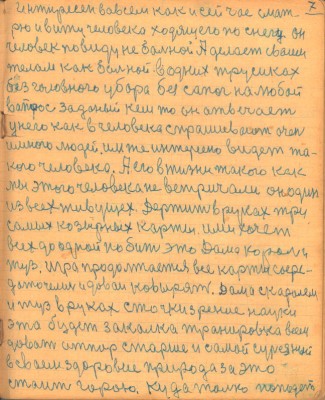 7
интересен вовсем как и сейчас смат
рю и вижу человека ходящего по снегу он
человек повиду не болной А делает своим
телом как болной водних трусиках
без головного убора без сапог на любой
вопрос заданый кем то он отвечает
у него как в человека спрашивают очен
много людей им же интересно видет та-
кого человека, А его в жизни такого как
мы этого человека не встричали он один
из всех живущех. Держит в руках три
самих козырних карты ими хочет
всех до одной побит это Дама корол и
туз, игра продолжается все карты сосре-
доточили и давай ковырят. Дама с каролем
и туз в руках с точки зрение науки
эта будет закалка тренировка всем
довать отпор старше и самой суровой
всваем здоровие природа за это
стоит горою, куда толко попадет